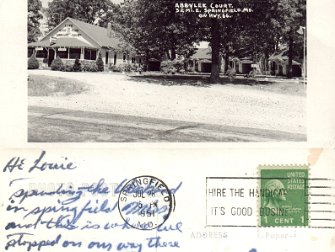 ABBYLEE COURT.
5 MI. E. SPRINGFIELD, MO.
ON HWY. 66.
Hi Louie
spending the weekend
in springfield Miss.
and this is where we
stopped on our way there
SPRINGFIELD
JUL 28
1951
MO.
HIRE THE HANDICAP
IT'S GOOD BUSINE
UNITED STATES
POSTAGE
1 CENT
ADDRESS